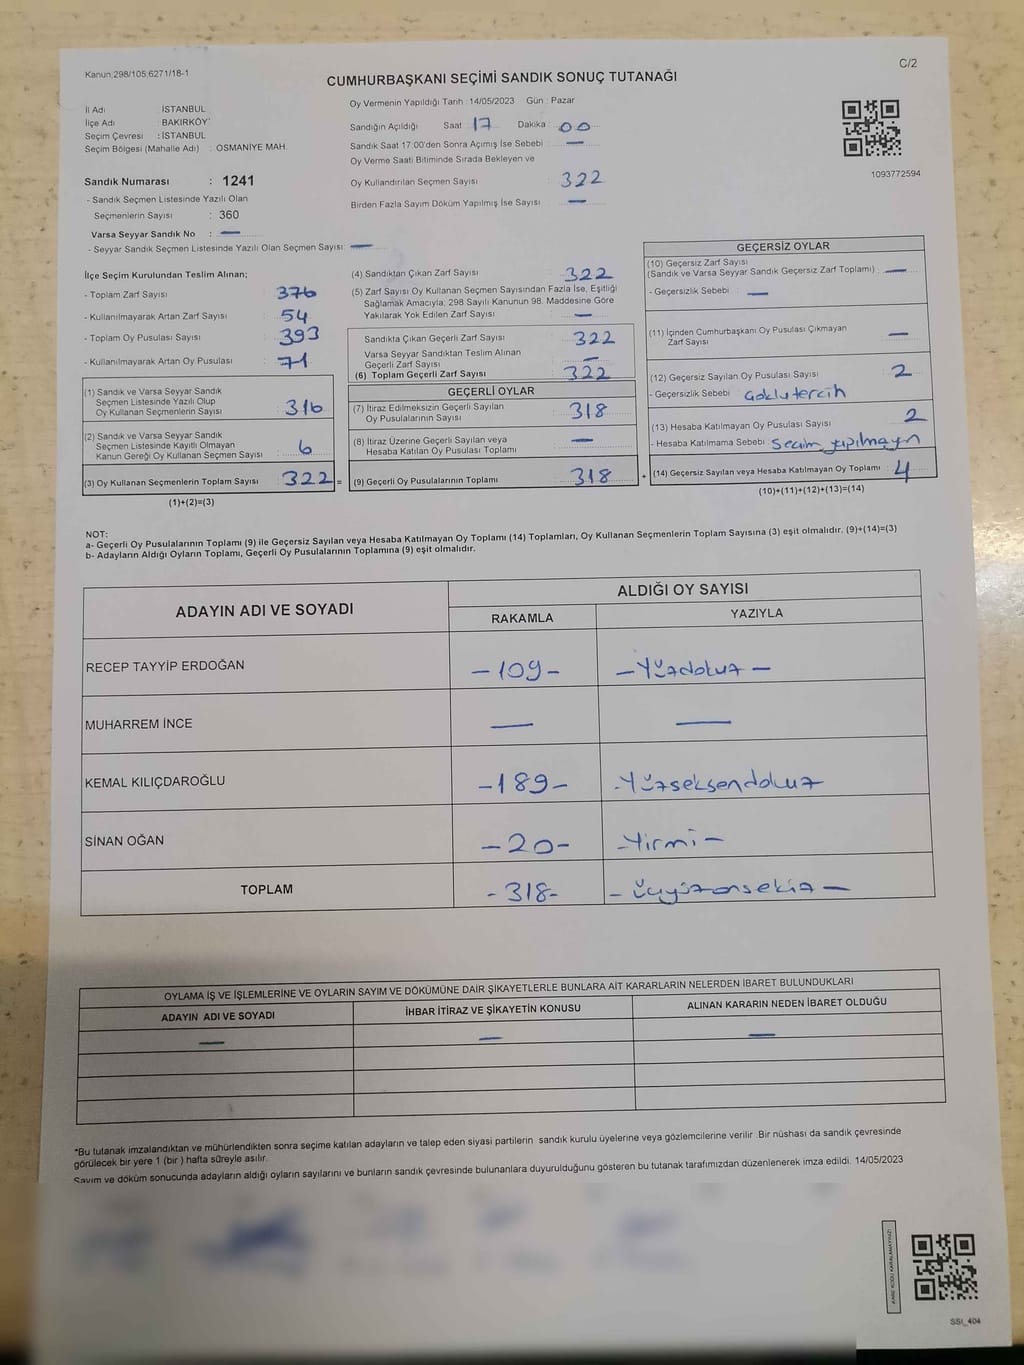 Kanun:298/105;6271/18-1
C/2
CUMHURBAŞKANI SEÇİMİ SANDIK SONUÇ TUTANAĞI
İl Adı : İSTANBUL
İlçe Adı : BAKIRKÖY
Seçim Çevresi : İSTANBUL
Seçim Bölgesi (Mahalle Adı) : OSMANİYE MAH.
Sandık Numarası : 1241
- Sandık Seçmen Listesinde Yazılı Olan
Seçmenlerin Sayısı : 360
Varsa Seyyar Sandık No : —
- Seyyar Sandık Seçmen Listesinde Yazılı Olan Seçmen Sayısı: —
Oy Vermenin Yapıldığı Tarih : 14/05/2023 Gün : Pazar
Sandığın Açıldığı Saat : 17 Dakika : 00
Sandık Saat 17:00'den Sonra Açımış İse Sebebi : —
Oy Verme Saati Bitiminde Sırada Bekleyen ve
Oy Kullandırılan Seçmen Sayısı : 322
Birden Fazla Sayım Döküm Yapılmış İse Sayısı : —
1093772594
İlçe Seçim Kurulundan Teslim Alınan;
- Toplam Zarf Sayısı : 376
- Kullanılmayarak Artan Zarf Sayısı : 54
- Toplam Oy Pusulası Sayısı : 393
- Kullanılmayarak Artan Oy Pusulası : 71
(1) Sandık ve Varsa Seyyar Sandık
Seçmen Listesinde Yazılı Olup
Oy Kullanan Seçmenlerin Sayısı : 316
(2) Sandık ve Varsa Seyyar Sandık
Seçmen Listesinde Kayıtlı Olmayan
Kanun Gereği Oy Kullanan Seçmen Sayısı : 6
(3) Oy Kullanan Seçmenlerin Toplam Sayısı : 322 =
(1)+(2)=(3)
(4) Sandıktan Çıkan Zarf Sayısı : 322
(5) Zarf Sayısı Oy Kullanan Seçmen Sayısından Fazla İse, Eşitliği
Sağlamak Amacıyla; 298 Sayılı Kanunun 98. Maddesine Göre
Yakılarak Yok Edilen Zarf Sayısı : —
Sandıkta Çıkan Geçerli Zarf Sayısı : 322
Varsa Seyyar Sandıktan Teslim Alınan
Geçerli Zarf Sayısı : —
(6) Toplam Geçerli Zarf Sayısı : 322
GEÇERLİ OYLAR
(7) İtiraz Edilmeksizin Geçerli Sayılan
Oy Pusulalarının Sayısı : 318
(8) İtiraz Üzerine Geçerli Sayılan veya
Hesaba Katılan Oy Pusulası Toplamı : —
(9) Geçerli Oy Pusulalarının Toplamı : 318 +
GEÇERSİZ OYLAR
(10) Geçersiz Zarf Sayısı
(Sandık ve Varsa Seyyar Sandık Geçersiz Zarf Toplamı) : —
- Geçersizlik Sebebi : —
(11) İçinden Cumhurbaşkanı Oy Pusulası Çıkmayan
Zarf Sayısı : —
(12) Geçersiz Sayılan Oy Pusulası Sayısı : 2
- Geçersizlik Sebebi : Çoklu tercih
(13) Hesaba Katılmayan Oy Pusulası Sayısı : 2
- Hesaba Katılmama Sebebi : Seçim yapılmayn
(14) Geçersiz Sayılan veya Hesaba Katılmayan Oy Toplamı : 4
(10)+(11)+(12)+(13)=(14)
NOT:
a- Geçerli Oy Pusulalarının Toplamı (9) ile Geçersiz Sayılan veya Hesaba Katılmayan Oy Toplamı (14) Toplamları, Oy Kullanan Seçmenlerin Toplam Sayısına (3) eşit olmalıdır. (9)+(14)=(3)
b- Adayların Aldığı Oyların Toplamı, Geçerli Oy Pusulalarının Toplamına (9) eşit olmalıdır.
ADAYIN ADI VE SOYADI
ALDIĞI OY SAYISI
RAKAMLA YAZIYLA
RECEP TAYYİP ERDOĞAN -109- -Yüzdokuz-
MUHARREM İNCE — —
KEMAL KILIÇDAROĞLU -189- -Yüzseksendokuz
SİNAN OĞAN -20- -Yirmi-
TOPLAM -318- -Üçyüzonsekiz-
OYLAMA İŞ VE İŞLEMLERİNE VE OYLARIN SAYIM VE DÖKÜMÜNE DAİR ŞİKAYETLERLE BUNLARA AİT KARARLARIN NELERDEN İBARET BULUNDUKLARI
ADAYIN ADI VE SOYADI İHBAR İTİRAZ VE ŞİKAYETİN KONUSU ALINAN KARARIN NEDEN İBARET OLDUĞU
— — —
*Bu tutanak imzalandıktan ve mühürlendikten sonra seçime katılan adayların ve talep eden siyasi partilerin sandık kurulu üyelerine veya gözlemcilerine verilir. Bir nüshası da sandık çevresinde
görülecek bir yere 1 (bir ) hafta süreyle asılır.
Sayım ve döküm sonucunda adayların aldığı oyların sayılarını ve bunların sandık çevresinde bulunanlara duyurulduğunu gösteren bu tutanak tarafımızdan düzenlenerek imza edildi. 14/05/2023
KARE KODU KARALAMAYINIZ!
SSI_404